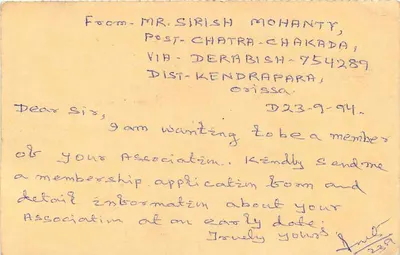 From- MR. SIRISH MOHANTY,
POST- CHATRA-CHAKADA,
VIA- DERABISH-754289
DIST- KENDRAPARA,
Orissa.
D23-9-94.
Dear Sir,
I am wanting to be a member
of your Association. Kindly send me
a membership application form and
detail information about your
Association at an early date.
Truely yours
23/9